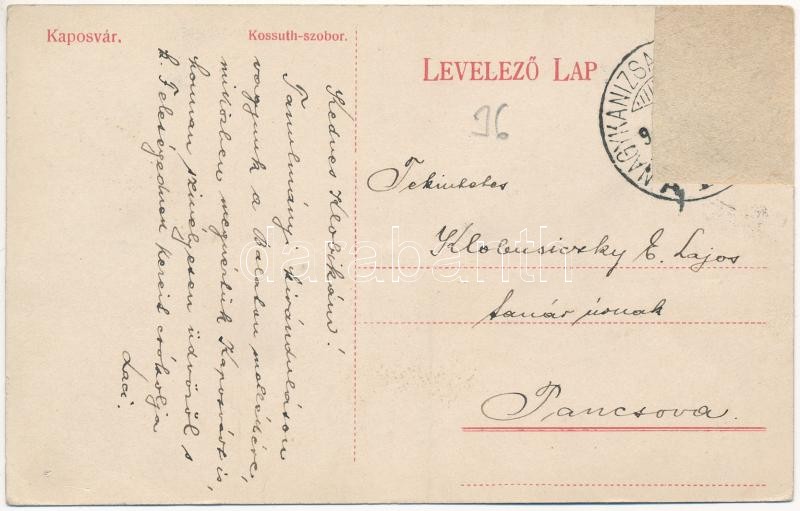 Kaposvár.
Kossuth-szobor.
LEVELEZŐ LAP
96
NAGYKANIZSA
Tekintetes
Klobusiczky E. Lajos
tanár úrnak
Pancsova.
Kedves Klobikám!
Tanulmányi kiránduláson
vagyunk a Balaton mellékére,
miközben megnéztük Kaposvárt is,
honnan szivélyesen üdvözöl s
k. Feleségednek kezeit csókolja
Laci.
darabanth